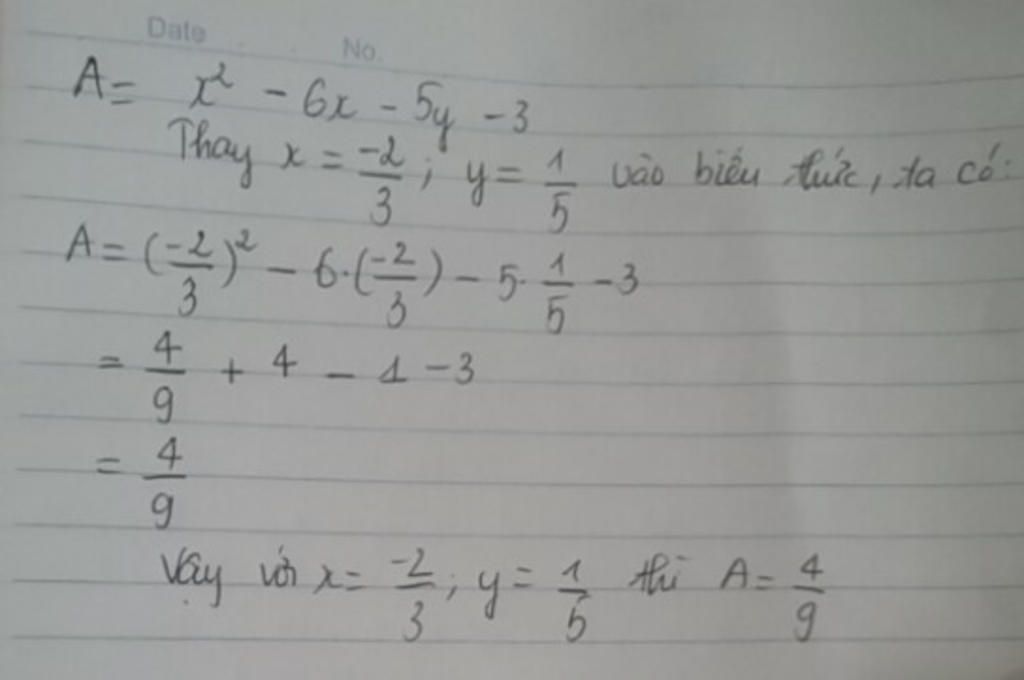 Date No.
A = x² - 6x - 5y - 3
Thay x = -2/3 ; y = 1/5 vào biểu thức, ta có:
A = (-2/3)² - 6·(-2/3) - 5·1/5 - 3
= 4/9 + 4 - 1 - 3
= 4/9
Vậy với x = -2/3 ; y = 1/5 thì A = 4/9